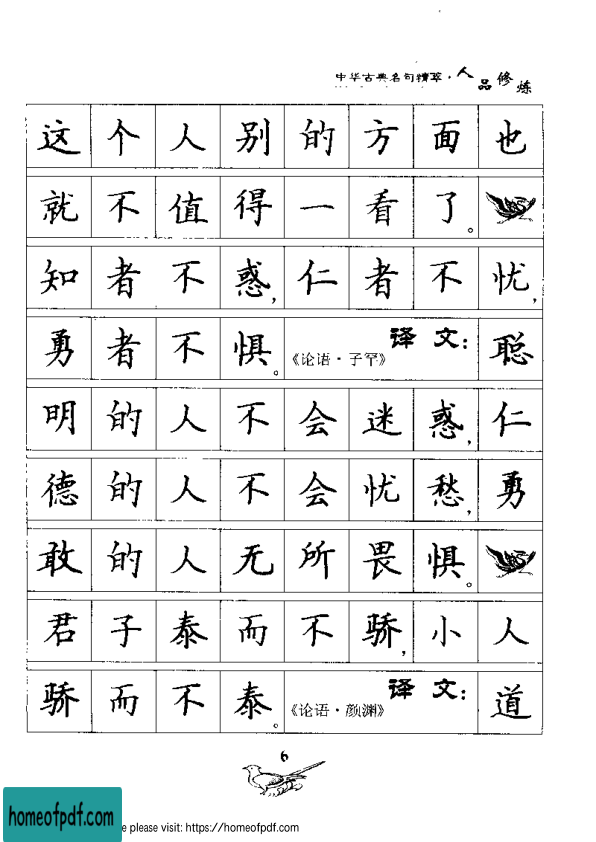 中华古典名句精萃·人品修炼
这个人别的方面也
就不值得一看了。
知者不惑,仁者不忧,
勇者不惧。《论语·子罕》译文:聪
明的人不会迷惑,仁
德的人不会忧愁,勇
敢的人无所畏惧。
君子泰而不骄,小人
骄而不泰。《论语·颜渊》译文:道
6
homeofpdf.com
e please visit: https://homeofpdf.com